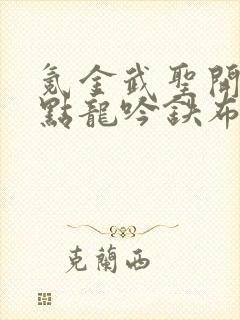 氪金武聖開
點龍吟鉄布
克蘭西